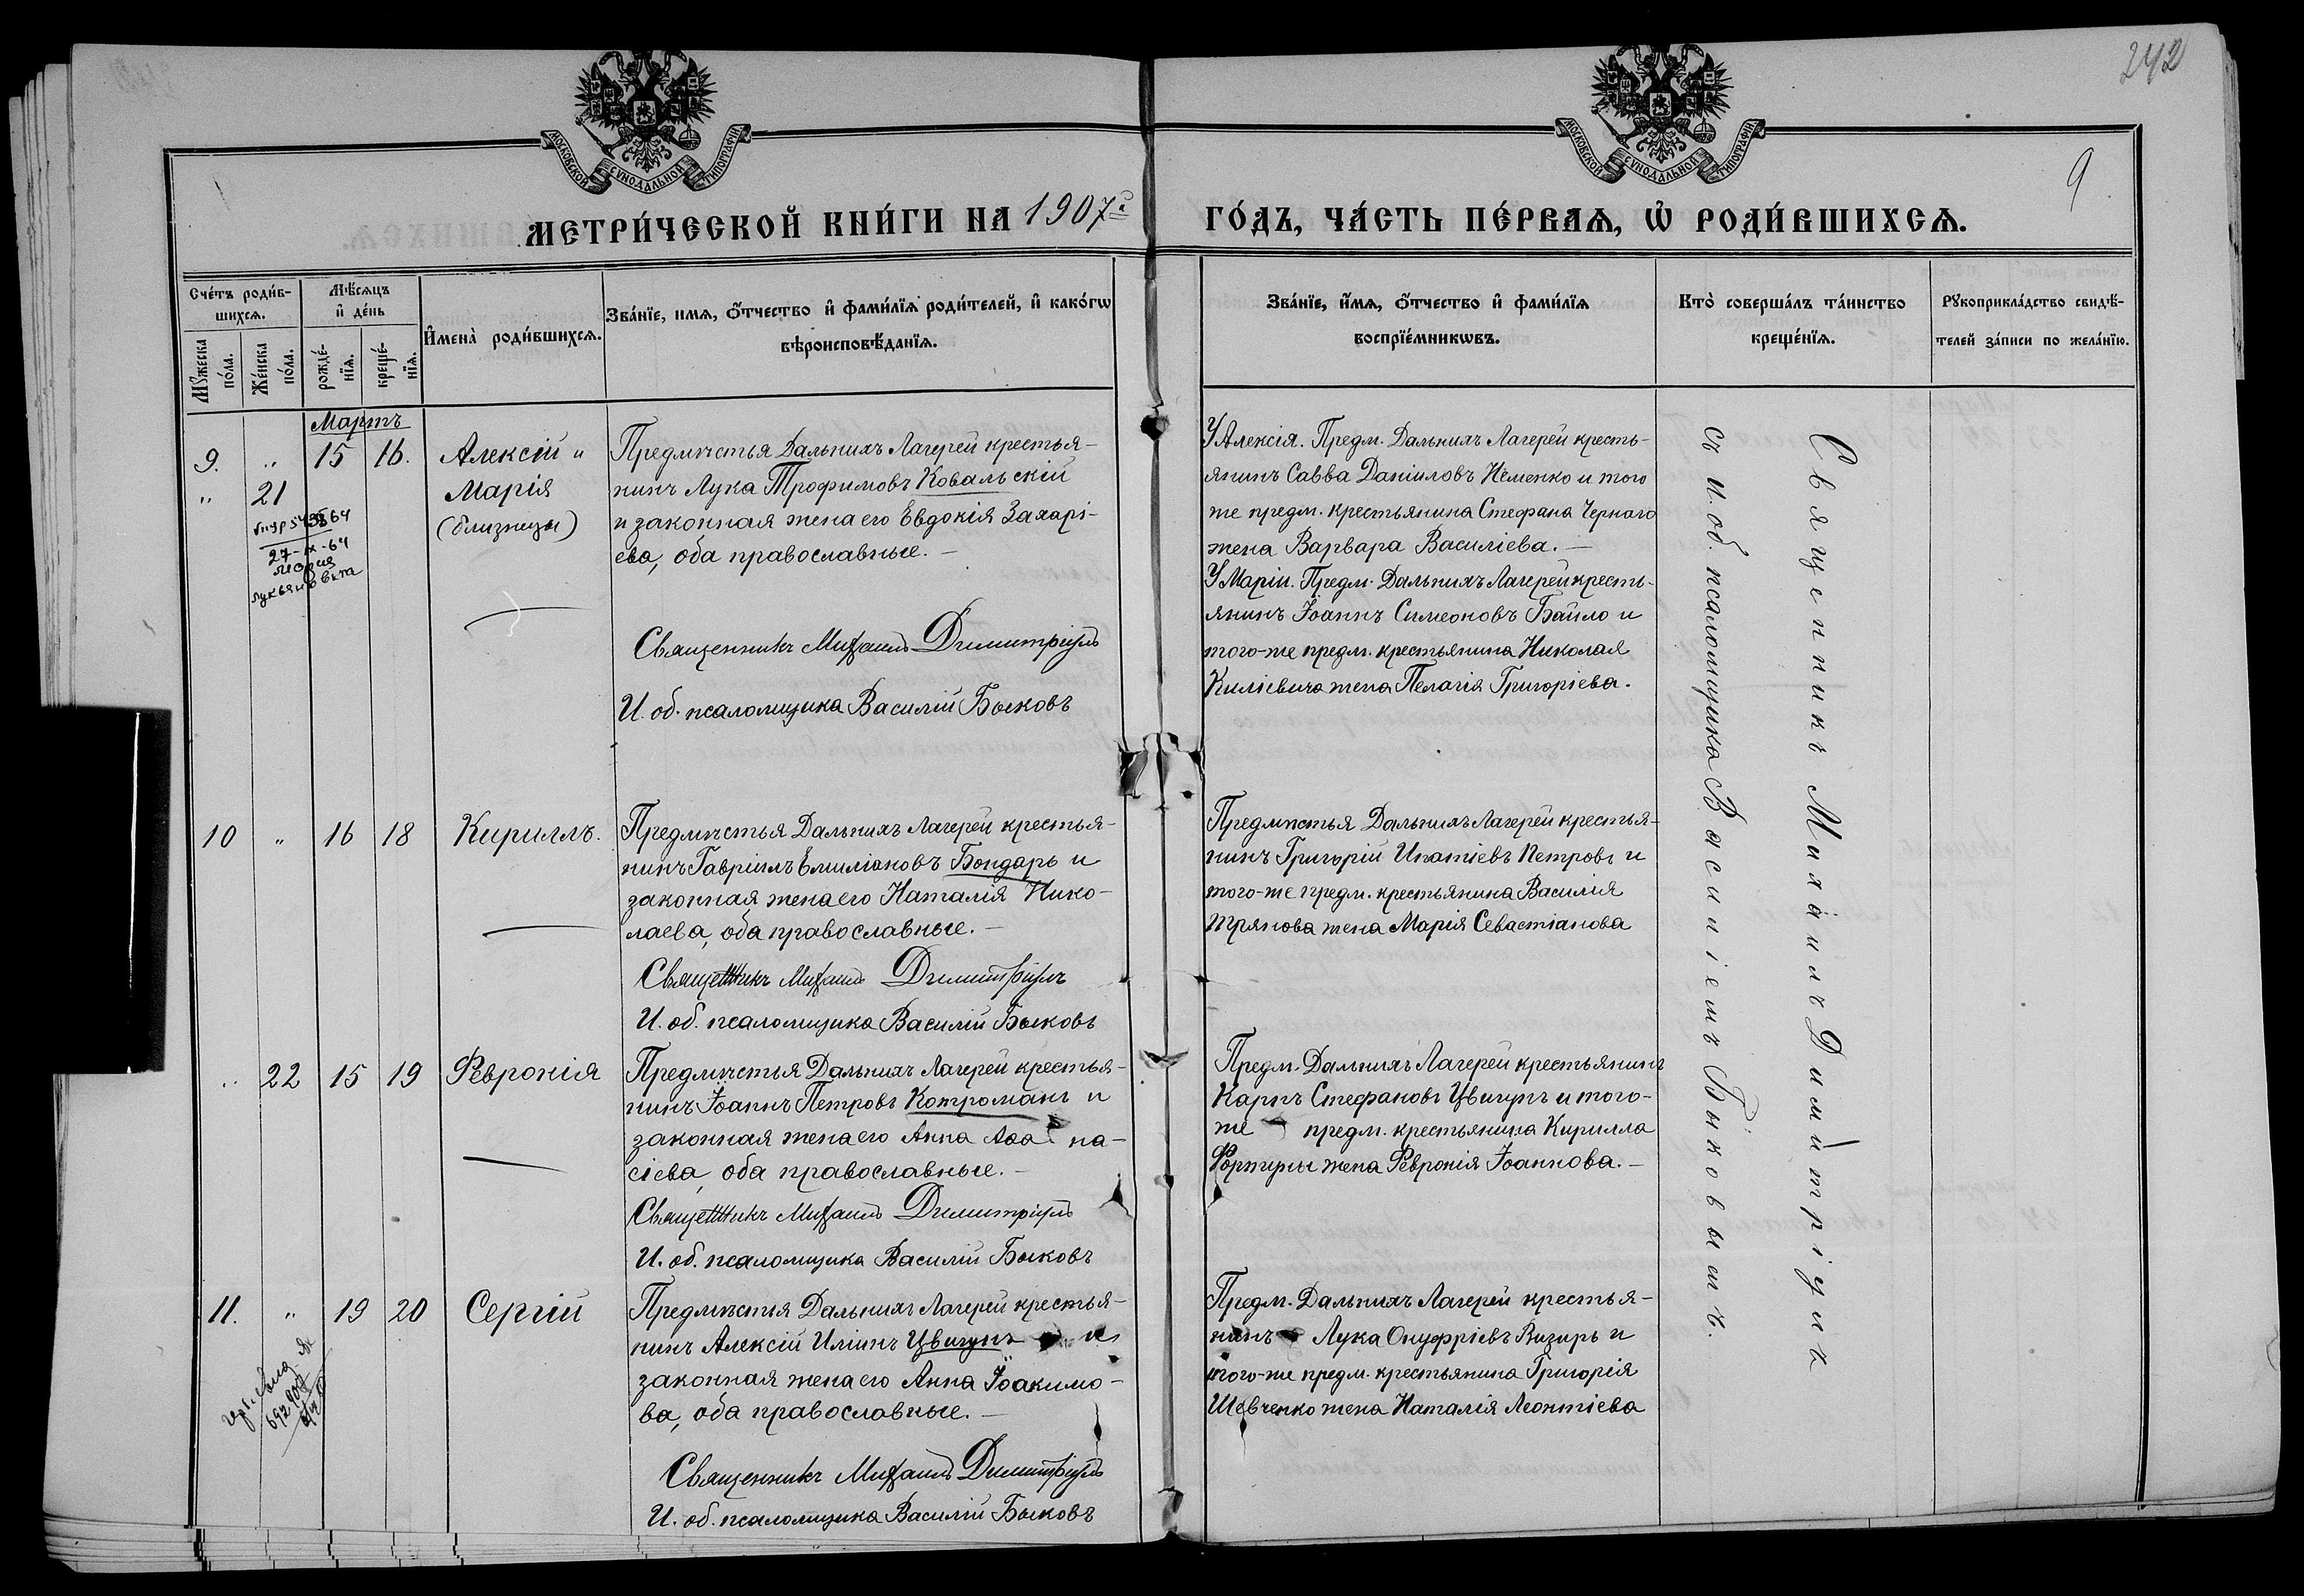 242
9
МОСКОВСКОЙ СѴНОДАЛЬНОЙ ТИПОГРАФІИ
МОСКОВСКОЙ СѴНОДАЛЬНОЙ ТИПОГРАФІИ
МЕТРИ́ЧЕСКОЙ КНИ́ГИ НА 1907й
ГО́ДЪ, ЧА́СТЬ ПЕ́РВАѦ, Ѡ РОДИ́ВШИХСѦ.
Сче́тъ роди́в-
шихсѧ.
Мꙋ́жеска по́ла.
Же́нска по́ла.
Мѣ́сѧцъ
и҆ де́нь
рожде́-
нїѧ.
креще́-
нїѧ.
И҆мена̀ роди́вшихсѧ.
Зва́нїе, имѧ, ѻ҆́тчество и҆ фами́лїѧ роди́телей, и҆ како́гѡ
вѣроисповѣ́данїѧ.
Зва́нїе, и҆́мѧ, ѻ҆́тчество и҆ фами́лїѧ
воспрїе́мникѡвъ.
Кто̀ соверша́лъ та́инство
креще́нїѧ.
Рꙋкоприкла́дство свидѣ́-
телей за́писи по жела́нїю.
Мартъ
9. " 15 16. Алексій и
" 21 Марія
(близнецы)
27-IX-64
Мария
Лукьяновна
Предмѣстья Дальнихъ Лагерей крестья-
нинъ Лука Трофимовъ Ковальскій
и законная жена его Евдокія Захарі-
ева, оба православные. —
Священникъ Михаилъ Димитріулъ
И. об. псаломщика Василій Быковъ
У Алексія. Предм. Дальнихъ Лагерей кресть-
янинъ Савва Даніиловъ Нѣменко и того
же предм. крестьянина Стефана Чернаго
жена Варвара Василіева. —
У Маріи. Предм. Дальнихъ Лагерей кресть-
янинъ Іоаннъ Симеоновъ Байло и
того-же предм. крестьянина Николая
Киліевича жена Пелагія Григоріева.
10 " 16 18 Кириллъ.
Предмѣстья Дальнихъ Лагерей крестья-
нинъ Гавріилъ Емиліановъ Бондарь и
законная жена его Наталія Нико-
лаева, оба православные. —
Священникъ Михаилъ Димитріулъ
И. об. псаломщика Василій Быковъ
Предмѣстья Дальнихъ Лагерей крестья-
нинъ Григорій Ипатіевъ Петровъ и
того-же предм. крестьянина Василія
Трянова жена Марія Севастіанова
" 22 15 19 Февронія
Предмѣстья Дальнихъ Лагерей крестья-
нинъ Іоаннъ Петровъ Котроманъ и
законная жена его Анна Аѳа на-
сіева, оба православные. —
Священникъ Михаилъ Димитріулъ
И. об. псаломщика Василій Быковъ
Предм. Дальнихъ Лагерей крестьянинъ
Карпъ Стефановъ Цвигунъ и того-
же предм. крестьянина Кирилла
Фортуны жена Февронія Іоаннова. —
11. " 19 20 Сергій
Предмѣстья Дальнихъ Лагерей крестья-
нинъ Алексій Иліинъ Цвигунъ и
законная жена его Анна Іоакимо-
ва, оба православные. —
Священникъ Михаилъ Димитріулъ
И. об. псаломщика Василій Быковъ
Предм. Дальнихъ Лагерей крестья-
нинъ Лука Онуфріевъ Визирь и
того-же предм. крестьянина Григорія
Шевченко жена Наталія Леонтіева
Священникъ Михаилъ Димитріулъ
съ и. об. псаломщика Василіемъ Быковымъ.